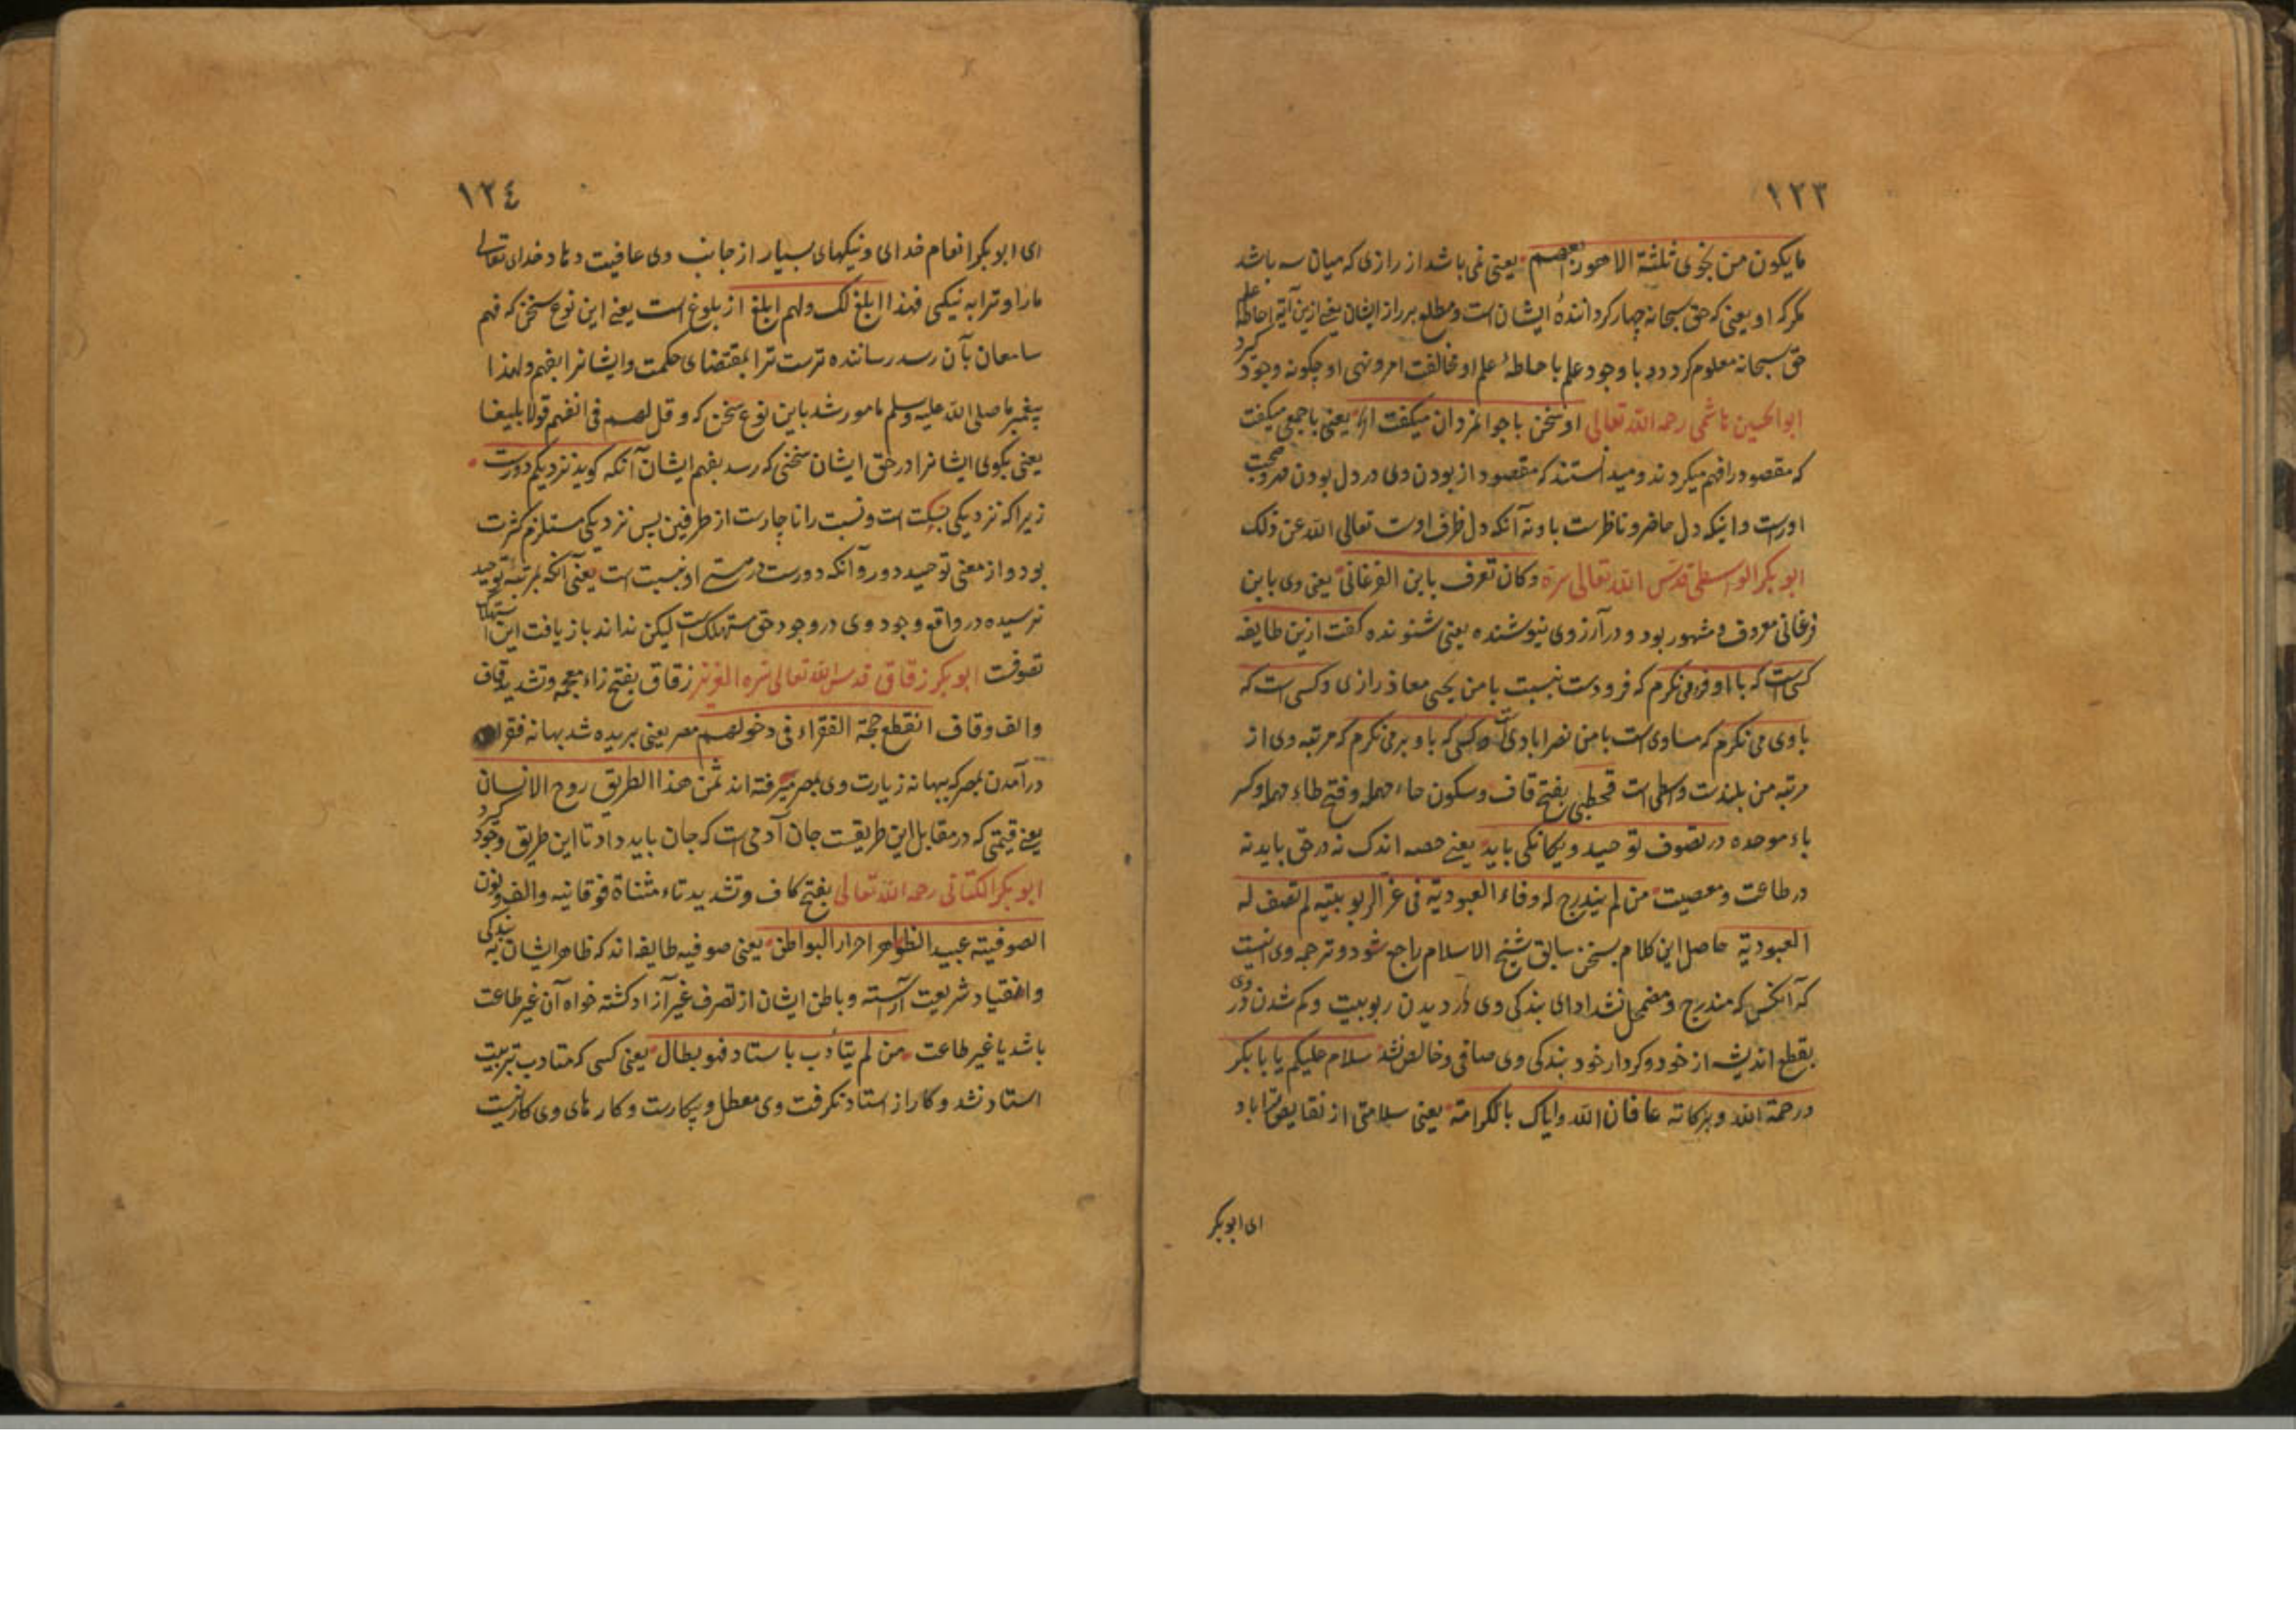 ١٢٣
مایکون من نجوی ثلثة الا هو رابعهم یعنی نمی باشد از رازی که میان سه باشد
مکر که او یعنی که حق سبحانه چهار کردانندهٔ ایشان است و مطلع بر راز ایشان یعنی ازین آیة احاطهٔ علم
حق سبحانه معلوم کردد و با وجود علم باحاطهٔ علم او مخالفت امر و نهی او چکونه وجود کیرد
ابوالحسین هاشمی رحمه الله تعالی او سخن با جوانمردان میکفت یعنی با جمعی میکفت
که مقصود را فهم میکردند و میدانستند که مقصود از بودن وی در دل بودن مهر و محبت
اوست و اینکه دل حاضر و ناظرست باو نه آنکه دل ظرف اوست تعالی الله عن ذلک
ابو بکر الواسطی قدس الله تعالی سره و کان تعرف بابن الفرغانی یعنی وی بابن
فرغانی معروف و مشهور بود و در آرزوی نیوشنده یعنی شنونده کفت ازین طایفه
کسی است که باو فرو می نکرم که فرودست نسبت بامن یحیی معاذ رازی و کسی است که
باوی می نکرم که مساوی است بامن نصرابادی است و کسی که باو بر می نکرم که مرتبه وی از
مرتبه من بلندست واسطی است قحطبی بفتح قاف و سکون حاء مهمله و فتح طاء مهمله و کسر
باء موحده در تصوف توحید و یکانکی باید یعنی حصه اندک نه در حق باید نه
در طاعت و معصیت من لم یندرج له وفاء العبودیة فی عز الربوبیة لم تصف له
العبودیة حاصل این کلام بسخن سابق شیخ الاسلام راجع شود و ترجمه وی اینست
که آنکس که مندرج و مضمحل نشد ادای بندکی وی در دیدن ربوبیت و کم شدن در وی
بقطع اندیشه از خود و کردار خود بندکی وی صافی و خالص نشد سلام علیکم یا بابکر
و رحمة الله و برکاته عافانا الله و ایاک بالکرامة یعنی سلامتی از نقایص ترا باد
ای ابو بکر
١٢٤
ای ابو بکر انعام خدای و نیکیهای بسیار از جانب وی عافیت دهاد خدای تعالی
مارا و ترا به نیکی فهذا ابلغ لک و لهم ابلغ از بلوغ است یعنی این نوع سخن که فهم
سامعان بآن رسد رساننده ترست ترا بمقتضای حکمت و ایشانرا بفهم و لهذا
پیغمبر ما صلی الله علیه و سلم مامور شد باین نوع سخن که و قل لهم فی انفسهم قولا بلیغا
یعنی بکوی ایشانرا در حق ایشان سخنی که رسد بفهم ایشان آنکه کوید نزدیکم دورست
زیرا که نزدیکی نسبت است و نسبت را ناچارست از طرفین پس نزدیکی مستلزم کثرت
بود و از معنی توحید دور و آنکه دورست در هستی او نیست است یعنی آنکه بمرتبهٔ توحید
نرسیده در واقع وجود وی در وجود حق مستهلک است لیکن نداند باز یافت این استهلاک
تصوفست ابو بکر زقاق قدس الله تعالی سره العزیز زقاق بفتح زاء معجمه و تشدید قاف
و الف و قاف انقطع حجة الفقراء فی دخولهم مصر یعنی بریده شد بهانه فقرا
در آمدن بمصر که ببهانه زیارت وی بمصر میرفته اند ثمن هذا الطریق روح الانسان
یعنی قیمتی که در مقابل این طریقست جان آدمی است که جان باید داد تا این طریق وجود کیرد
ابو بکر الکتانی رحمه الله تعالی بفتح کاف و تشدید تاء مثناة فوقانیه و الف و نون
الصوفیة عبید الظواهر احرار البواطن یعنی صوفیه طایفه اند که ظاهر ایشان به بندکی
و انقیاد شریعت آراسته و باطن ایشان از تصرف غیر آزاد کشته خواه آن غیر طاعت
باشد یا غیر طاعت من لم یتادب باستاد فهو بطال یعنی کسی که متادب بتربیت
استاد نشد و کار از استاد نکرفت وی معطل و بیکارست و کارهای وی کار نیست